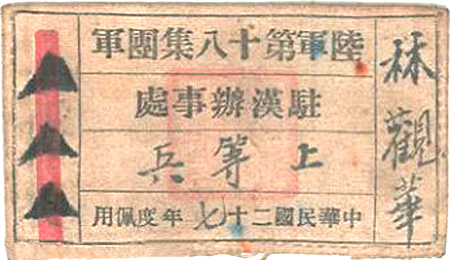 陸軍第十八集團軍
駐漢辦事處
上等兵
中華民國二十七年度佩用
林觀華